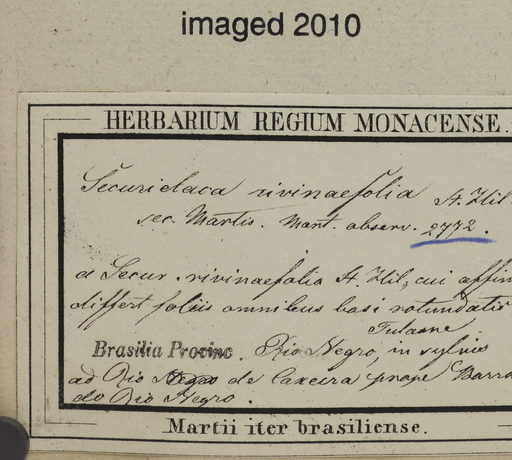 imaged 2010
HERBARIUM REGIUM MONACENSE.
Securidaca rivinaefolia St. Hil.
sec. Martis. Mart. observ. 2772.
a Secur. rivinaefolia St. Hil, cui affin
differt foliis omnibus basi rotundatis
Tulasne
Brasilia Provinc. Rio Negro, in sylvis
ad Rio Negro de Caxeira prope Barra
do Rio Negro.
Martii iter brasiliense.